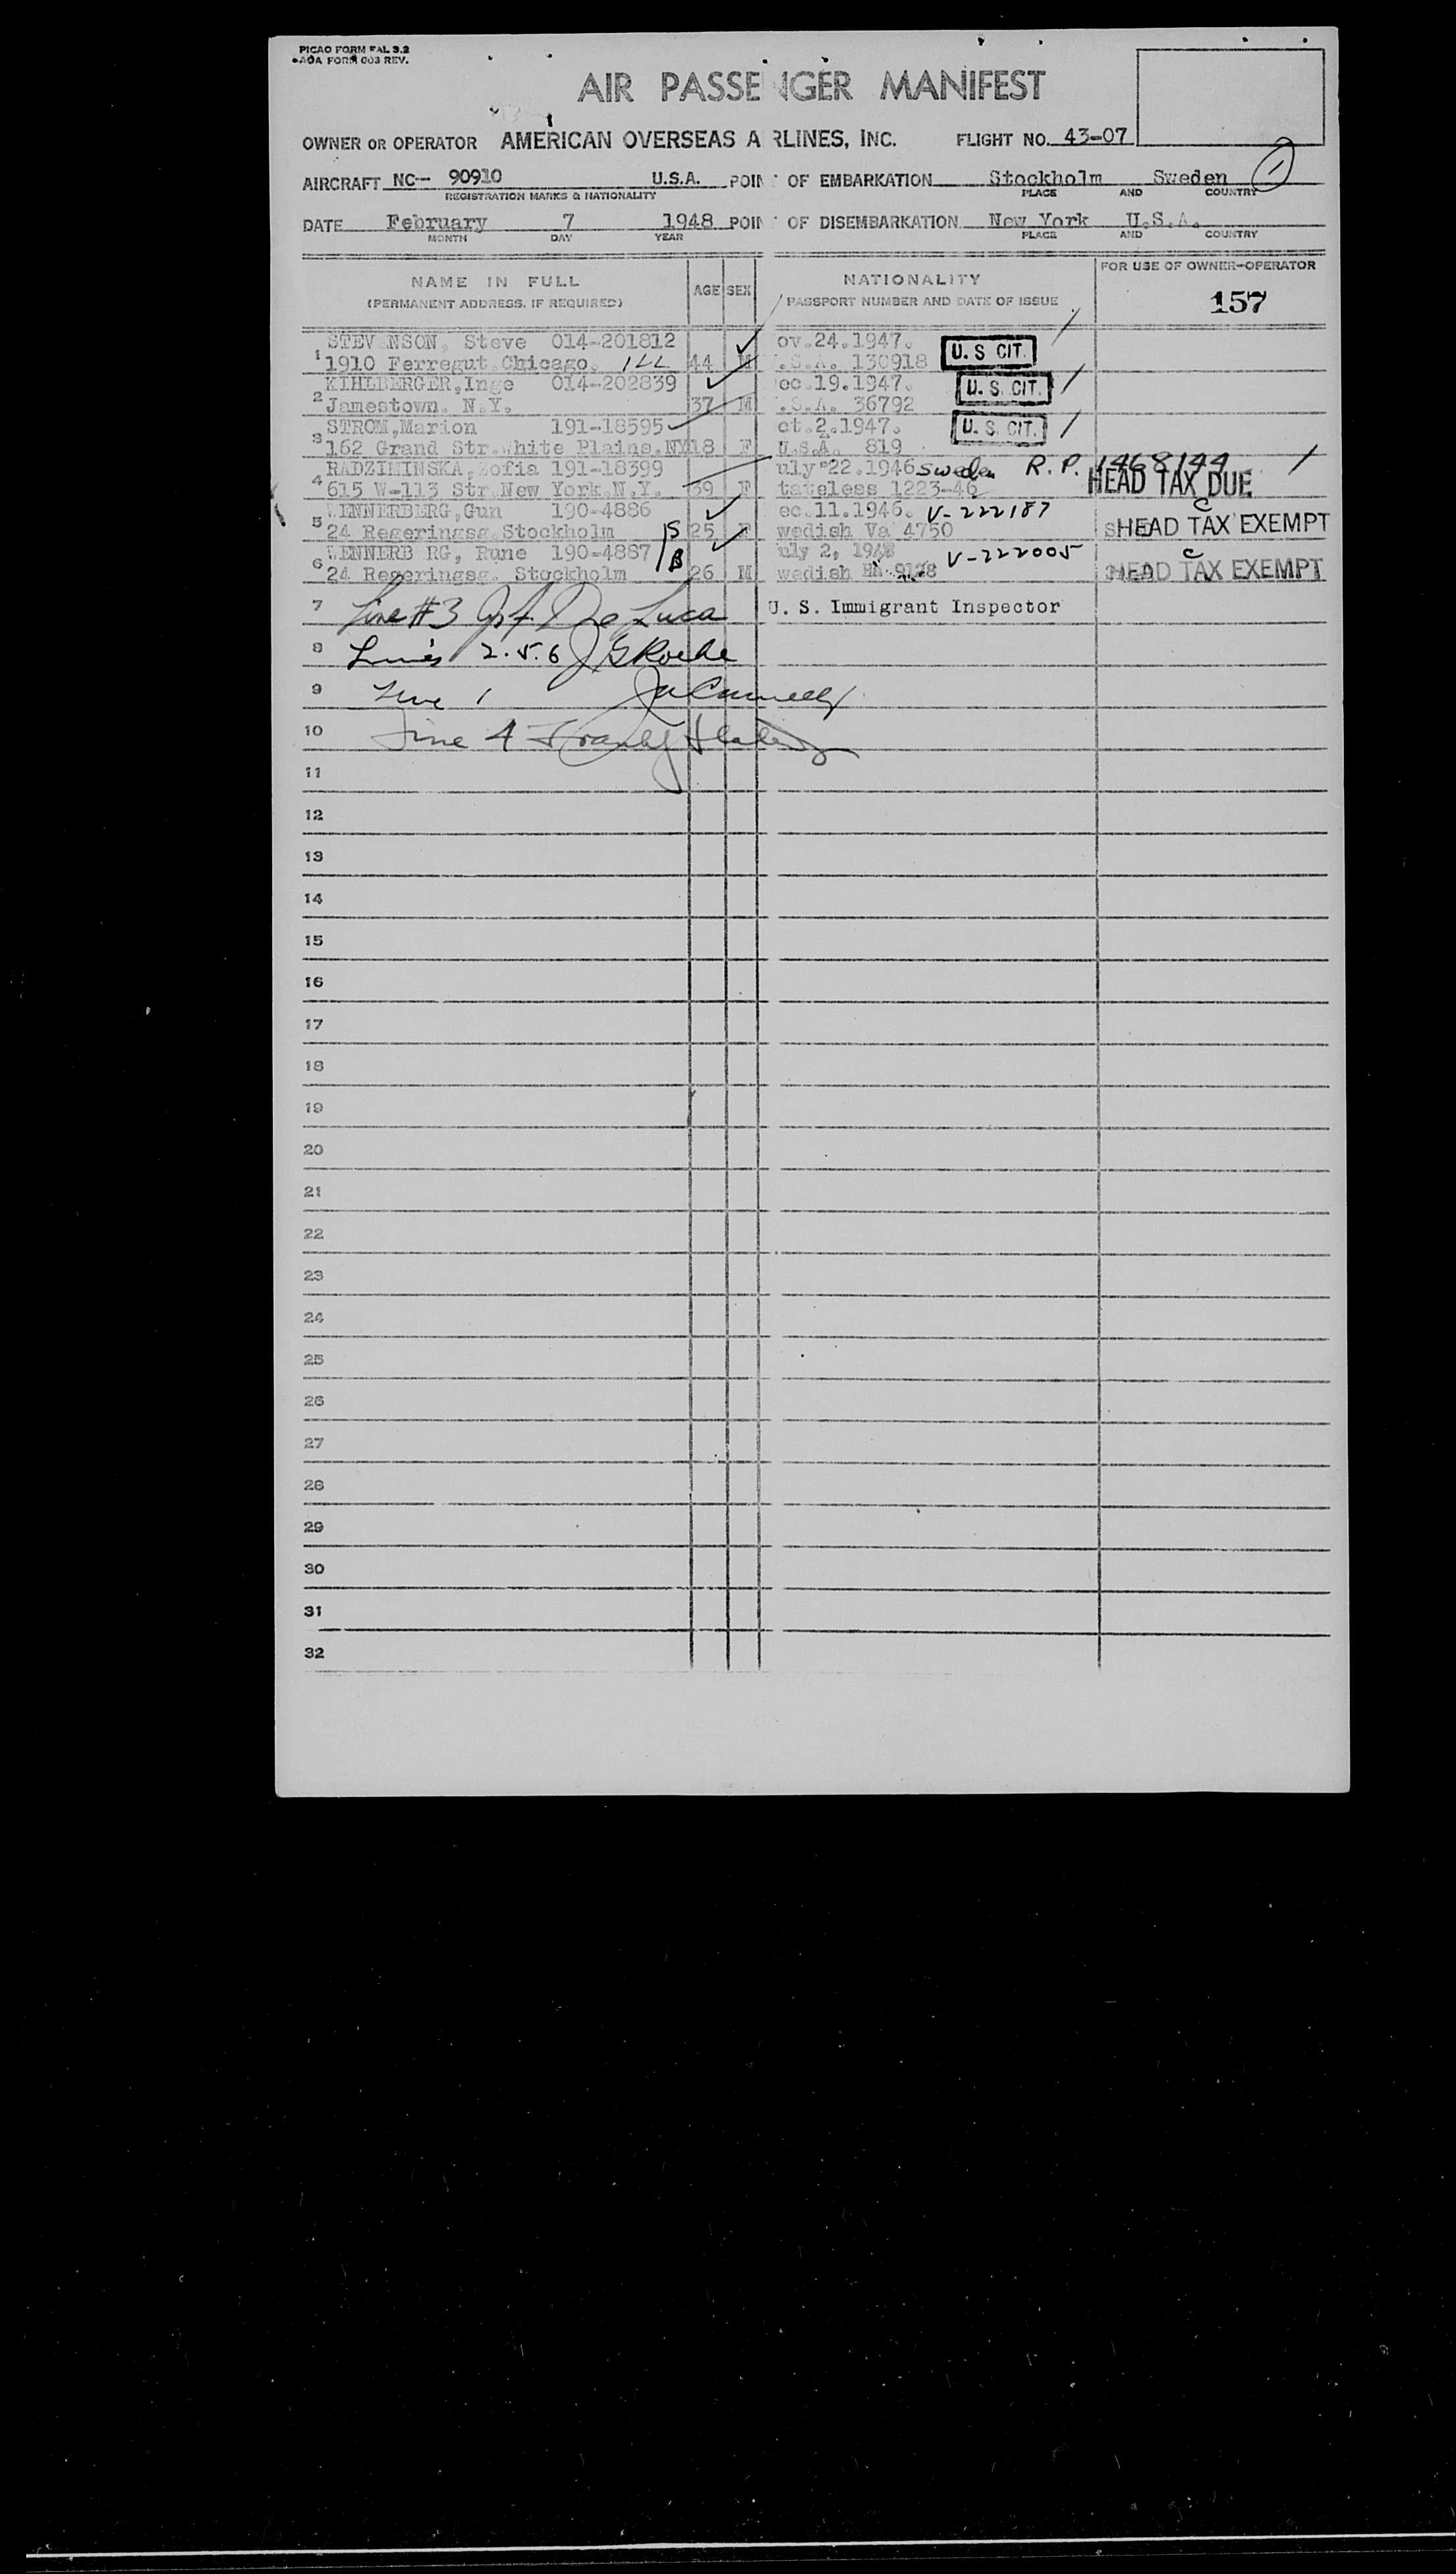 PICAO FORM FAL 3.2
AOA FORM 003 REV.
AIR PASSENGER MANIFEST
OWNER OR OPERATOR AMERICAN OVERSEAS A RLINES, INC. FLIGHT NO. 43-07
AIRCRAFT NC-- 90910 U.S.A. POIN OF EMBARKATION Stockholm Sweden 1
REGISTRATION MARKS & NATIONALITY PLACE AND COUNTRY
DATE February 7 1948 POIN OF DISEMBARKATION New York U.S.A.
MONTH DAY YEAR PLACE AND COUNTRY
NAME IN FULL AGE SEX NATIONALITY FOR USE OF OWNER-OPERATOR
(PERMANENT ADDRESS. IF REQUIRED) PASSPORT NUMBER AND DATE OF ISSUE 157
STEV NSON, Steve 014-201812 ov.24.1947. U. S CIT.
1 1910 Ferregut.Chicago. ILL 44 M .S.A. 130918
KIHLBERGER,Inge 014-202839 ec.19.1947. U. S. CIT.
2 Jamestown. N.Y. 37 M .S.A. 36792
STROM,Marion 191-18595 ct.2.1947. U. S. CIT.
3 162 Grand Str.White Plains.NY 18 F U.S.A. 819
RADZIMINSKA,Zofia 191-18399 uly 22.1946 Sweden R.P. 1468144
4 615 W-113 Str.New York.N.Y. 39 F tateless 1223-46 HEAD TAX DUE
WENNERBERG,Gun 190-4886 ec.11.1946. V-222187 C
5 24 Regeringsg.Stockholm S 25 F wedish Va 4750 HEAD TAX EXEMPT
WENNERB RG, Rune 190-4887 B uly 2, 194 V-222005 C
6 24 Regeringsg. Stockholm 26 M wedish 9128 HEAD TAX EXEMPT
7 Line #3 De Luca U. S. Immigrant Inspector
8 Lines 2.5.6 J G Roche
9 Line 1
10 Line 4
11
12
13
14
15
16
17
18
19
20
21
22
23
24
25
26
27
28
29
30
31
32